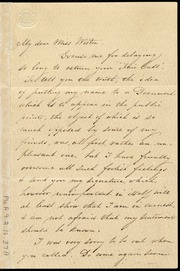 My dear Miss Weston
Excuse me for delaying
so long to return your "New Call".
To tell you the truth, the idea
of putting my name to a Document
which is to appear in the public
prints, the object of which is so
much opposed by some of my
friends, was at first rather an un
pleasant one, but I have finally
overcome all such foolish feelings
& send you my signature which,
however unimportant in itself will
at least show that I am in earnest,
& am not afraid that my sentiments
should be known.
I was very sorry to be out when
you called. Do come again soon